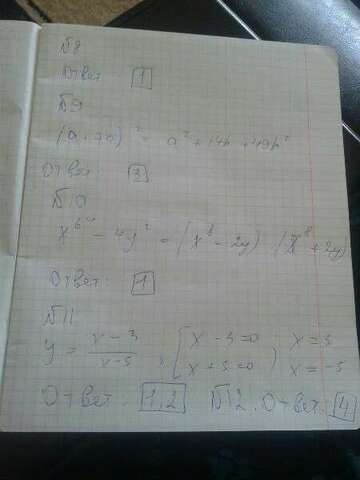 №8
Ответ: 1
№9
(a+7b)² = a²+14b+49b²
Ответ: 3
№10
x⁶⁴ - 4y² = (x⁸ - 2y) (x⁸ + 2y)
Ответ: 1
№11
y = x-3 / x-5 , [ x-3=0 ) x=3
x+5=0 x=-5
Ответ: 1,2 №12. Ответ 4